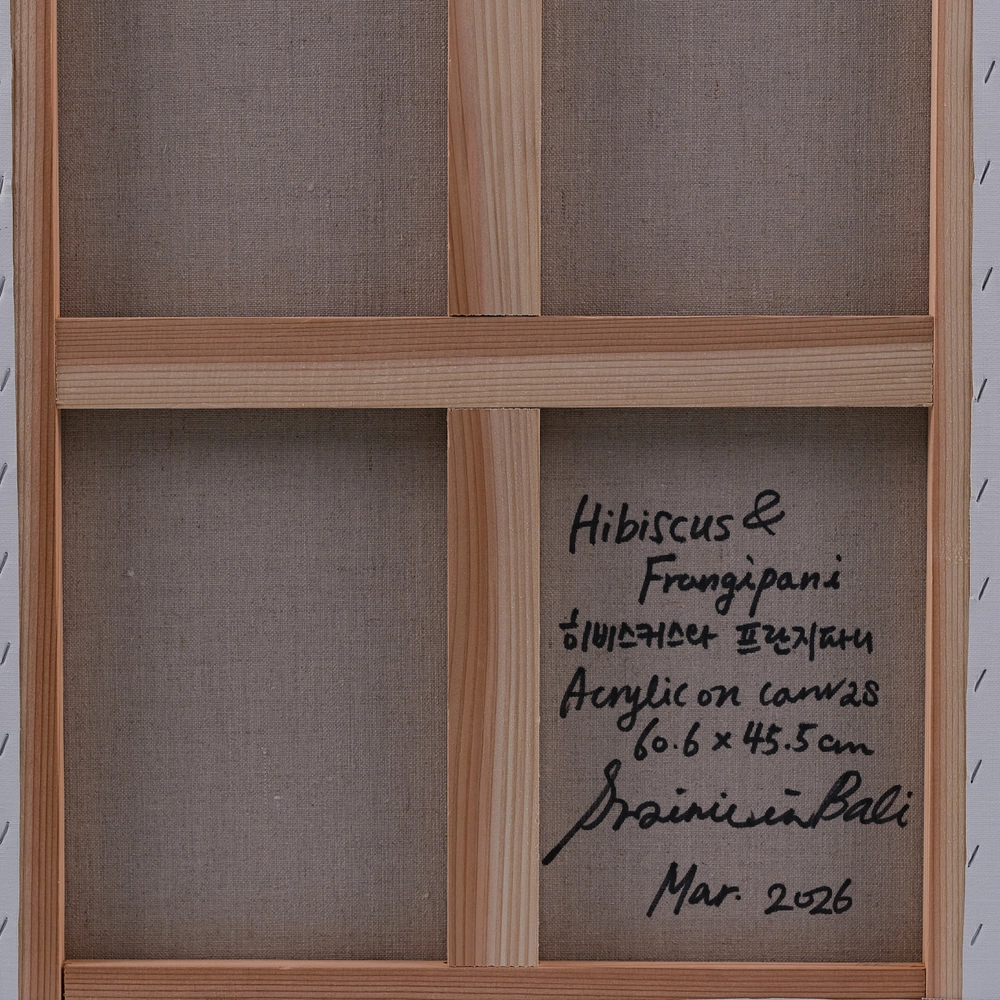 Hibiscus &
Frangipani
히비스커스와 프란지파니
Acrylic on canvas
60.6 x 45.5 cm
in Bali
Mar. 2026